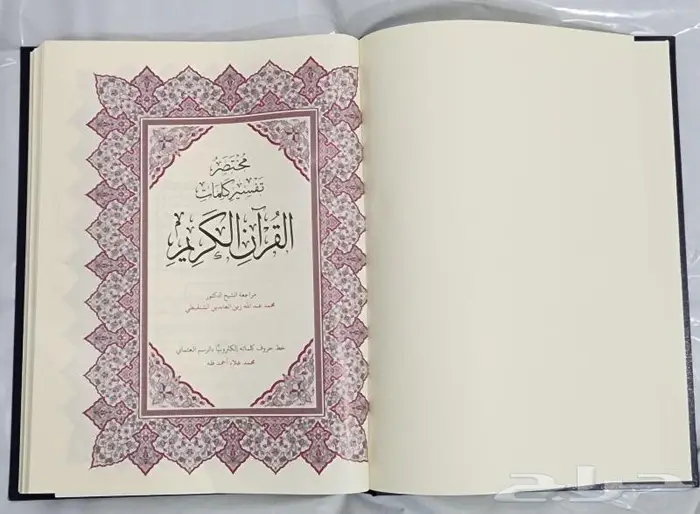 مُختَصَرُ
تَفسِير كَلِمَاتِ
القُرآنِ الكَرِيمِ
مراجعة الشيخ الدكتور
محمد عبد الله زين العابدين الشنقيطي
خط حروف كلماته إلكترونيًا بالرسم العثماني
محمد علاء أحمد طه
حراج